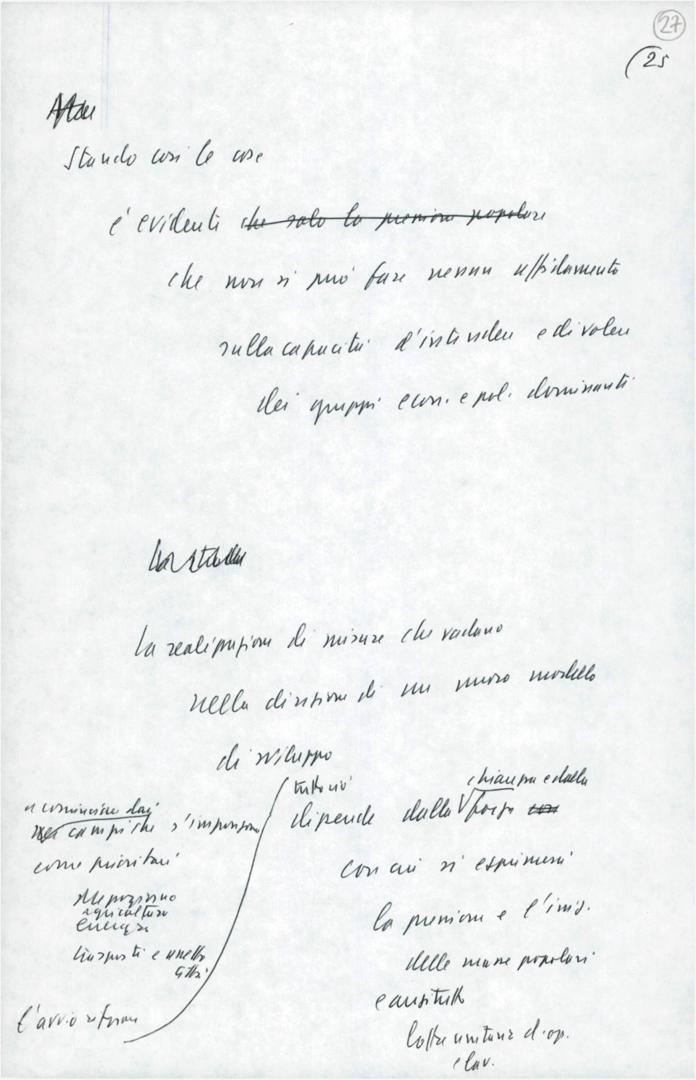 27
25
Stando così le cose
è evidente che solo la pressione popolare
che non si può fare nessun affidamento
sulla capacità d'intendere e di volere
dei gruppi econ. e pol. dominanti
La realizzazione di misure che vadano
nella direzione di un nuovo modello
di sviluppo
a cominciare dai
campi che s'impongono
come prioritari
Mezzogiorno
agricoltura
energia
trasporti e assetto
città
l'avvio riforme
tutto ciò
chiarezza e dalla
dipende dalla forza con
con cui si esprimerà
la pressione e l'iniz.
delle masse popolari
e anzitutto
lotta unitaria d. op.
e lav.